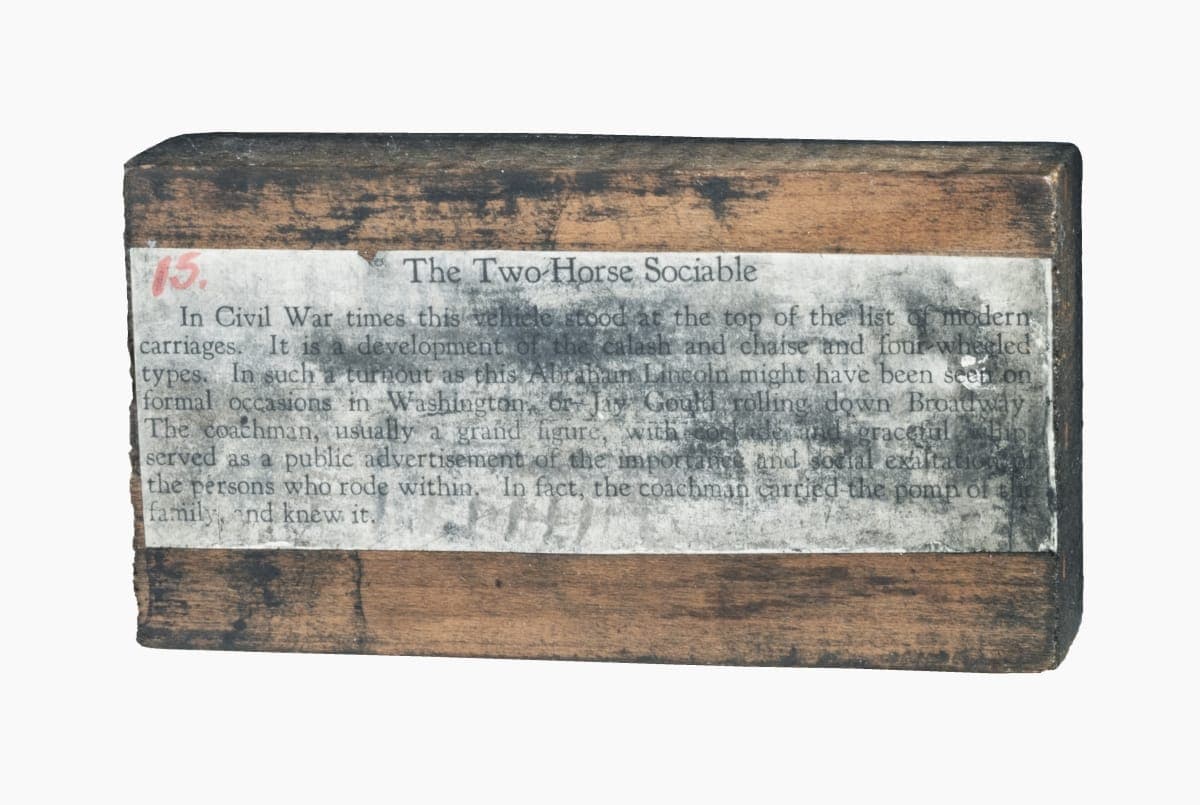 15.
The Two-Horse Sociable
In Civil War times this vehicle stood at the top of the list of modern
carriages. It is a development of the calash and chaise and four-wheeled
types. In such a turnout as this Abraham Lincoln might have been seen on
formal occasions in Washington, or Jay Gould rolling down Broadway
The coachman, usually a grand figure, with cockade and graceful whip
served as a public advertisement of the importance and social exaltation of
the persons who rode within. In fact, the coachman carried the pomp of the
family, and knew it.